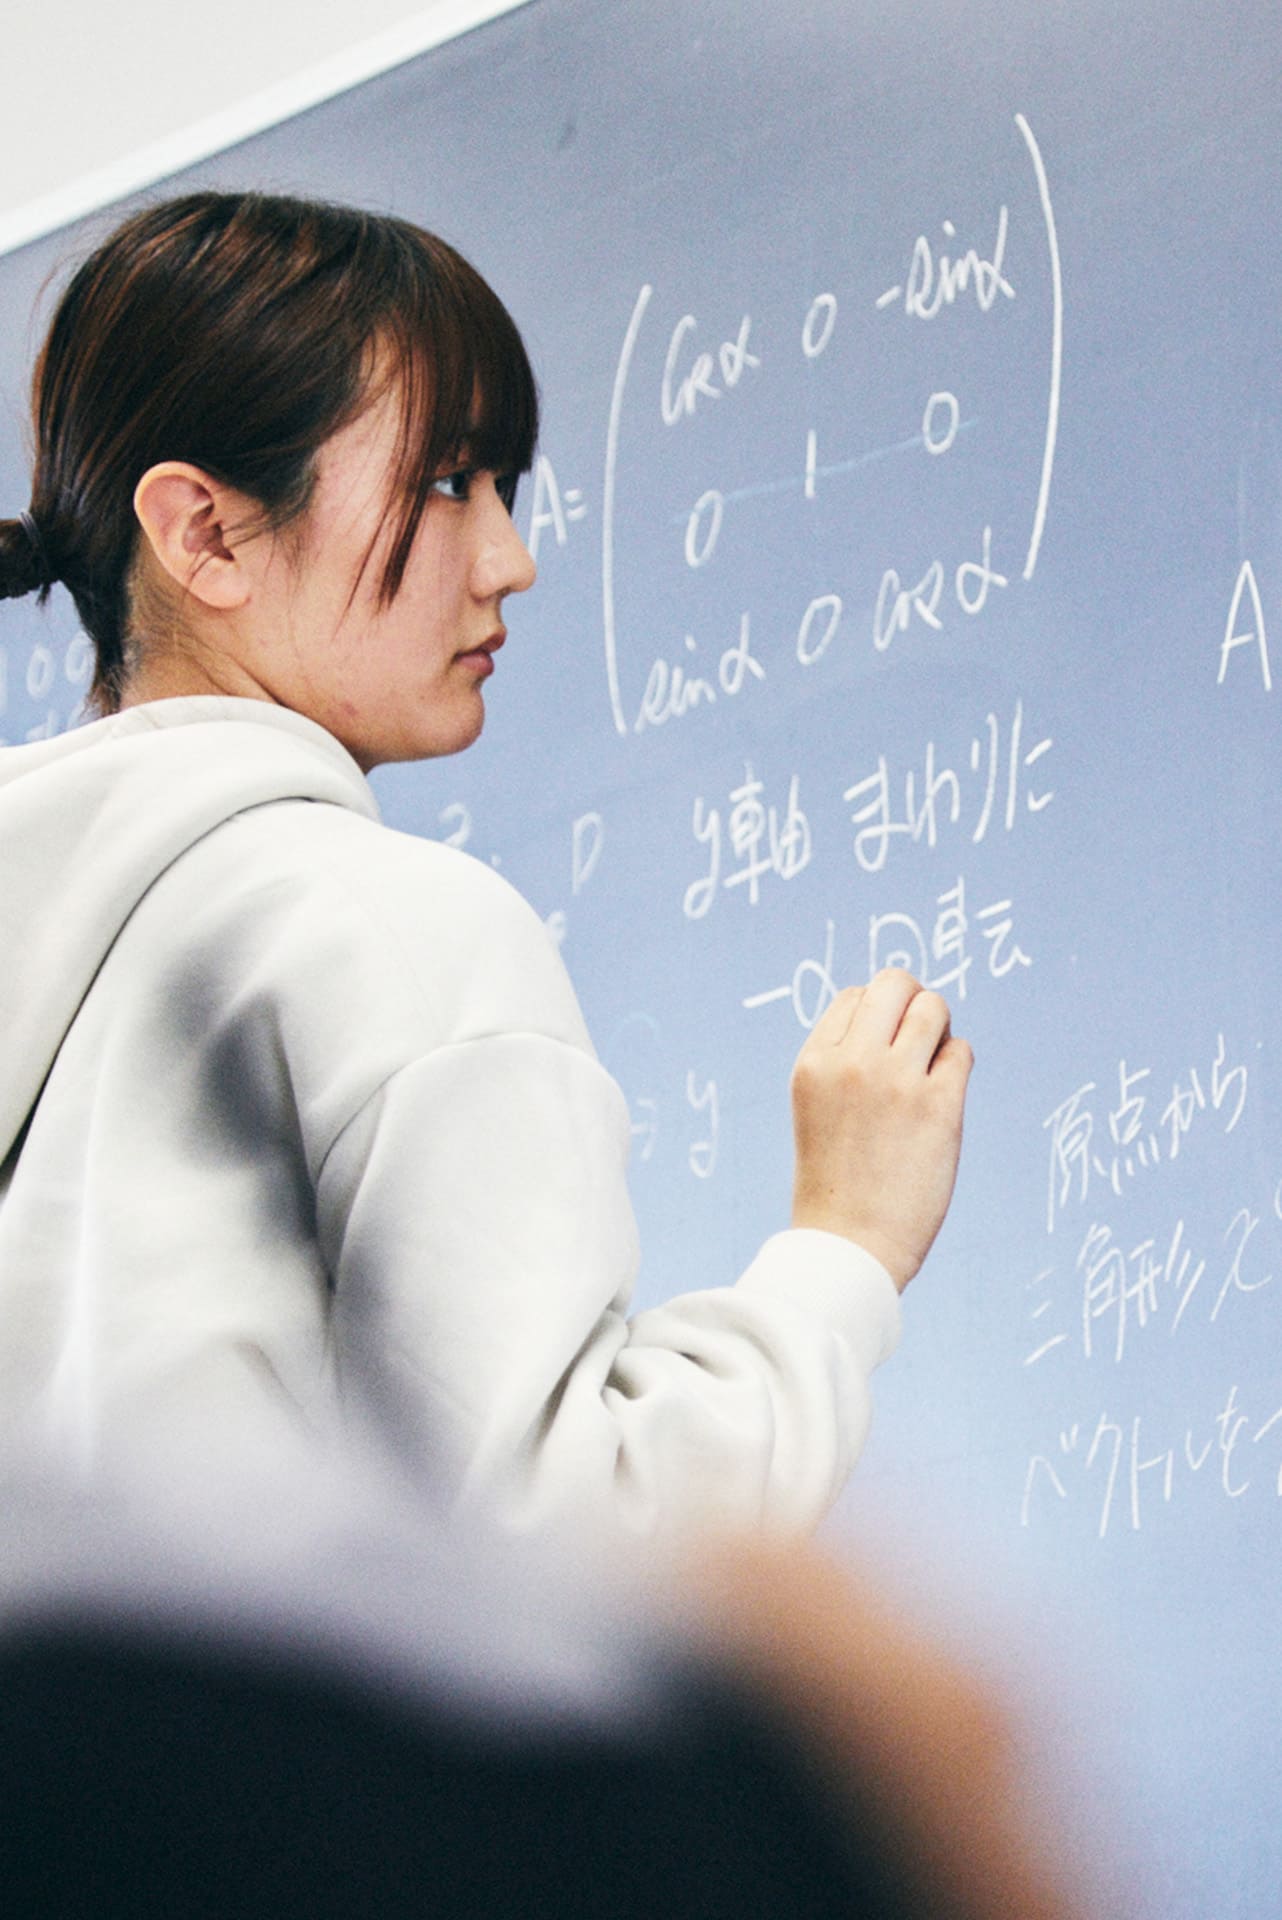 A= ( cosα 0 -sinα
0 1 0
sinα 0 cosα )
y軸 まわりに
-α 回転
A
D
y
原点から
三角形
ベクトルを
100